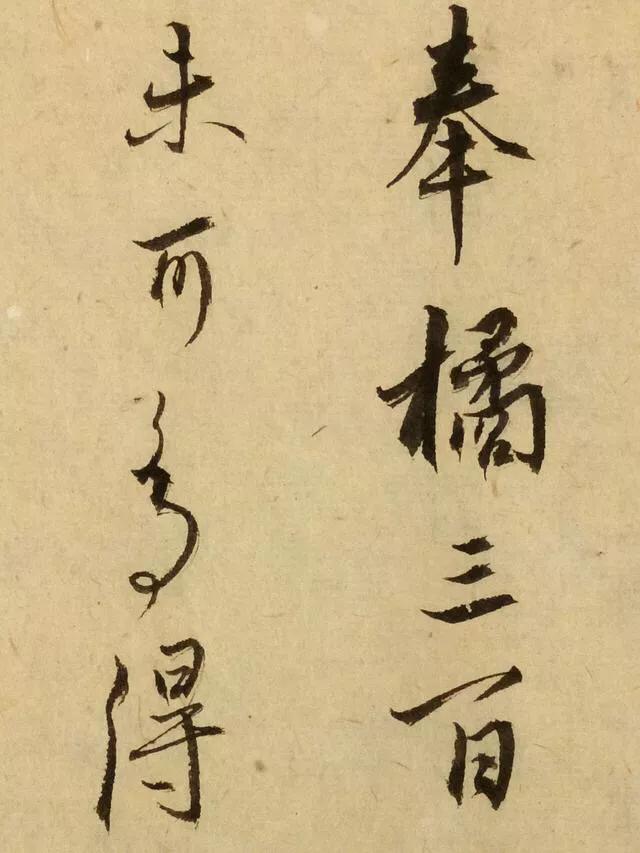 奉橘三百
未可多得